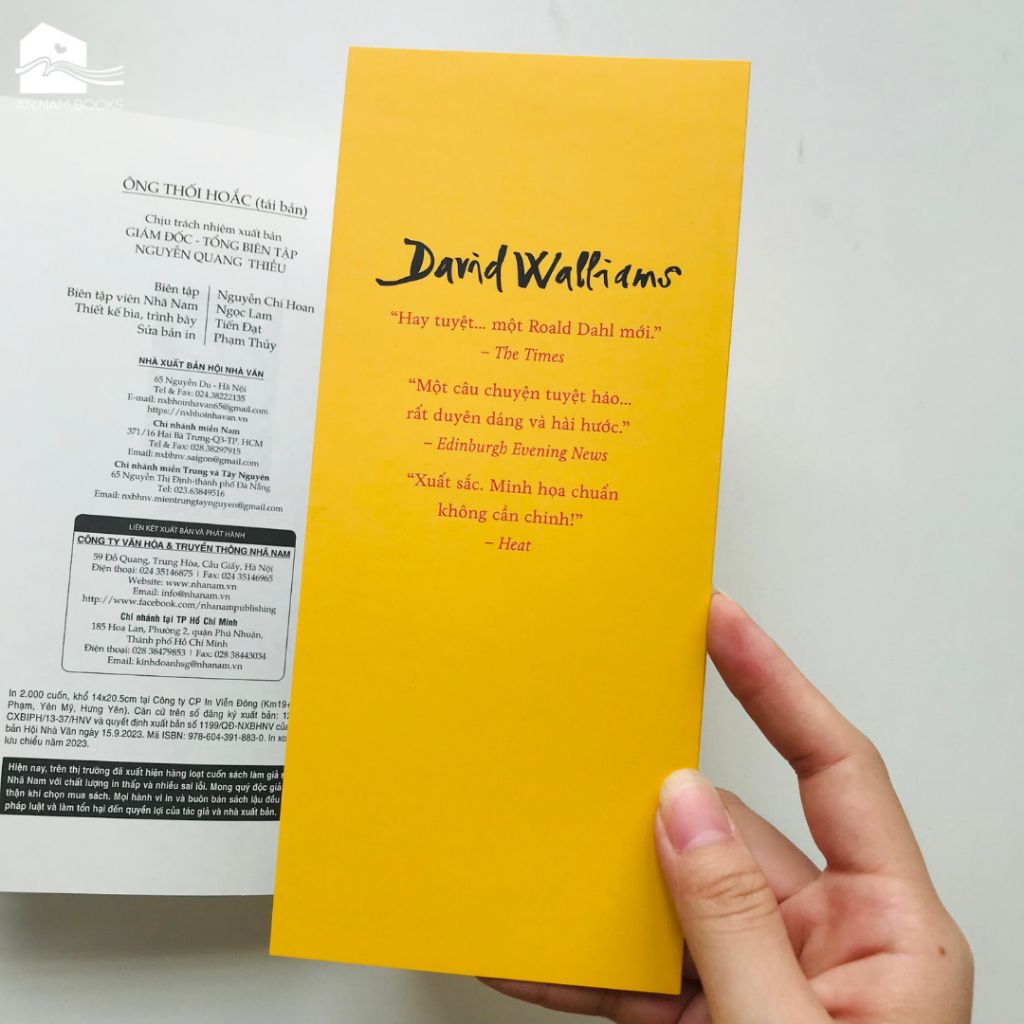 AN NAM BOOKS
ÔNG THỐI HOẮC (tái bản)
Chịu trách nhiệm xuất bản
GIÁM ĐỐC - TỔNG BIÊN TẬP
NGUYỄN QUANG THIỀU
Biên tập
Biên tập viên Nhã Nam
Thiết kế bìa, trình bày
Sửa bản in
Nguyễn Chí Hoan
Ngọc Lam
Tiến Đạt
Phạm Thủy
NHÀ XUẤT BẢN HỘI NHÀ VĂN
65 Nguyễn Du - Hà Nội
Tel & Fax: 024.38222135
E-mail: nxbhoinhavan65@gmail.com
https://nxbhoinhavan.vn
Chi nhánh miền Nam
371/16 Hai Bà Trưng-Q3-TP. HCM
Tel & Fax: 028.38297915
Email: nxbhnv.saigon@gmail.com
Chi nhánh miền Trung và Tây Nguyên
65 Nguyễn Thị Định-thành phố Đà Nẵng
Tel: 023.63849516
Email: nxbhnv.mientrungtaynguyen@gmail.com
LIÊN KẾT XUẤT BẢN VÀ PHÁT HÀNH
CÔNG TY VĂN HÓA & TRUYỀN THÔNG NHÃ NAM
59 Đỗ Quang, Trung Hòa, Cầu Giấy, Hà Nội
Điện thoại: 024 35146875 | Fax: 024 35146965
Website: www.nhanam.vn
Email: info@nhanam.vn
http://www.facebook.com/nhanampublishing
Chi nhánh tại TP Hồ Chí Minh
185 Hoa Lan, Phường 2, quận Phú Nhuận,
Thành phố Hồ Chí Minh
Điện thoại: 028 38479853 | Fax: 028 38443034
Email: kinhdoanhsg@nhanam.vn
In 2.000 cuốn, khổ 14x20.5cm tại Công ty CP In Viễn Đông (Km19+
Phạm, Yên Mỹ, Hưng Yên). Căn cứ trên số đăng ký xuất bản: 12
CXBIPH/13-37/HNV và quyết định xuất bản số 1199/QĐ-NXBHNV của
bản Hội Nhà Văn ngày 15.9.2023. Mã ISBN: 978-604-391-883-0. In xo
lưu chiểu năm 2023.
Hiện nay, trên thị trường đã xuất hiện hàng loạt cuốn sách làm giả s
Nhã Nam với chất lượng in thấp và nhiều sai lỗi. Mong quý độc giả
thận khi chọn mua sách. Mọi hành vi in và buôn bán sách lậu đều
pháp luật và làm tổn hại đến quyền lợi của tác giả và nhà xuất bản.
David Walliams
“Hay tuyệt... một Roald Dahl mới.”
– The Times
“Một câu chuyện tuyệt hảo...
rất duyên dáng và hài hước.”
– Edinburgh Evening News
“Xuất sắc. Minh họa chuẩn
không cần chỉnh!”
– Heat